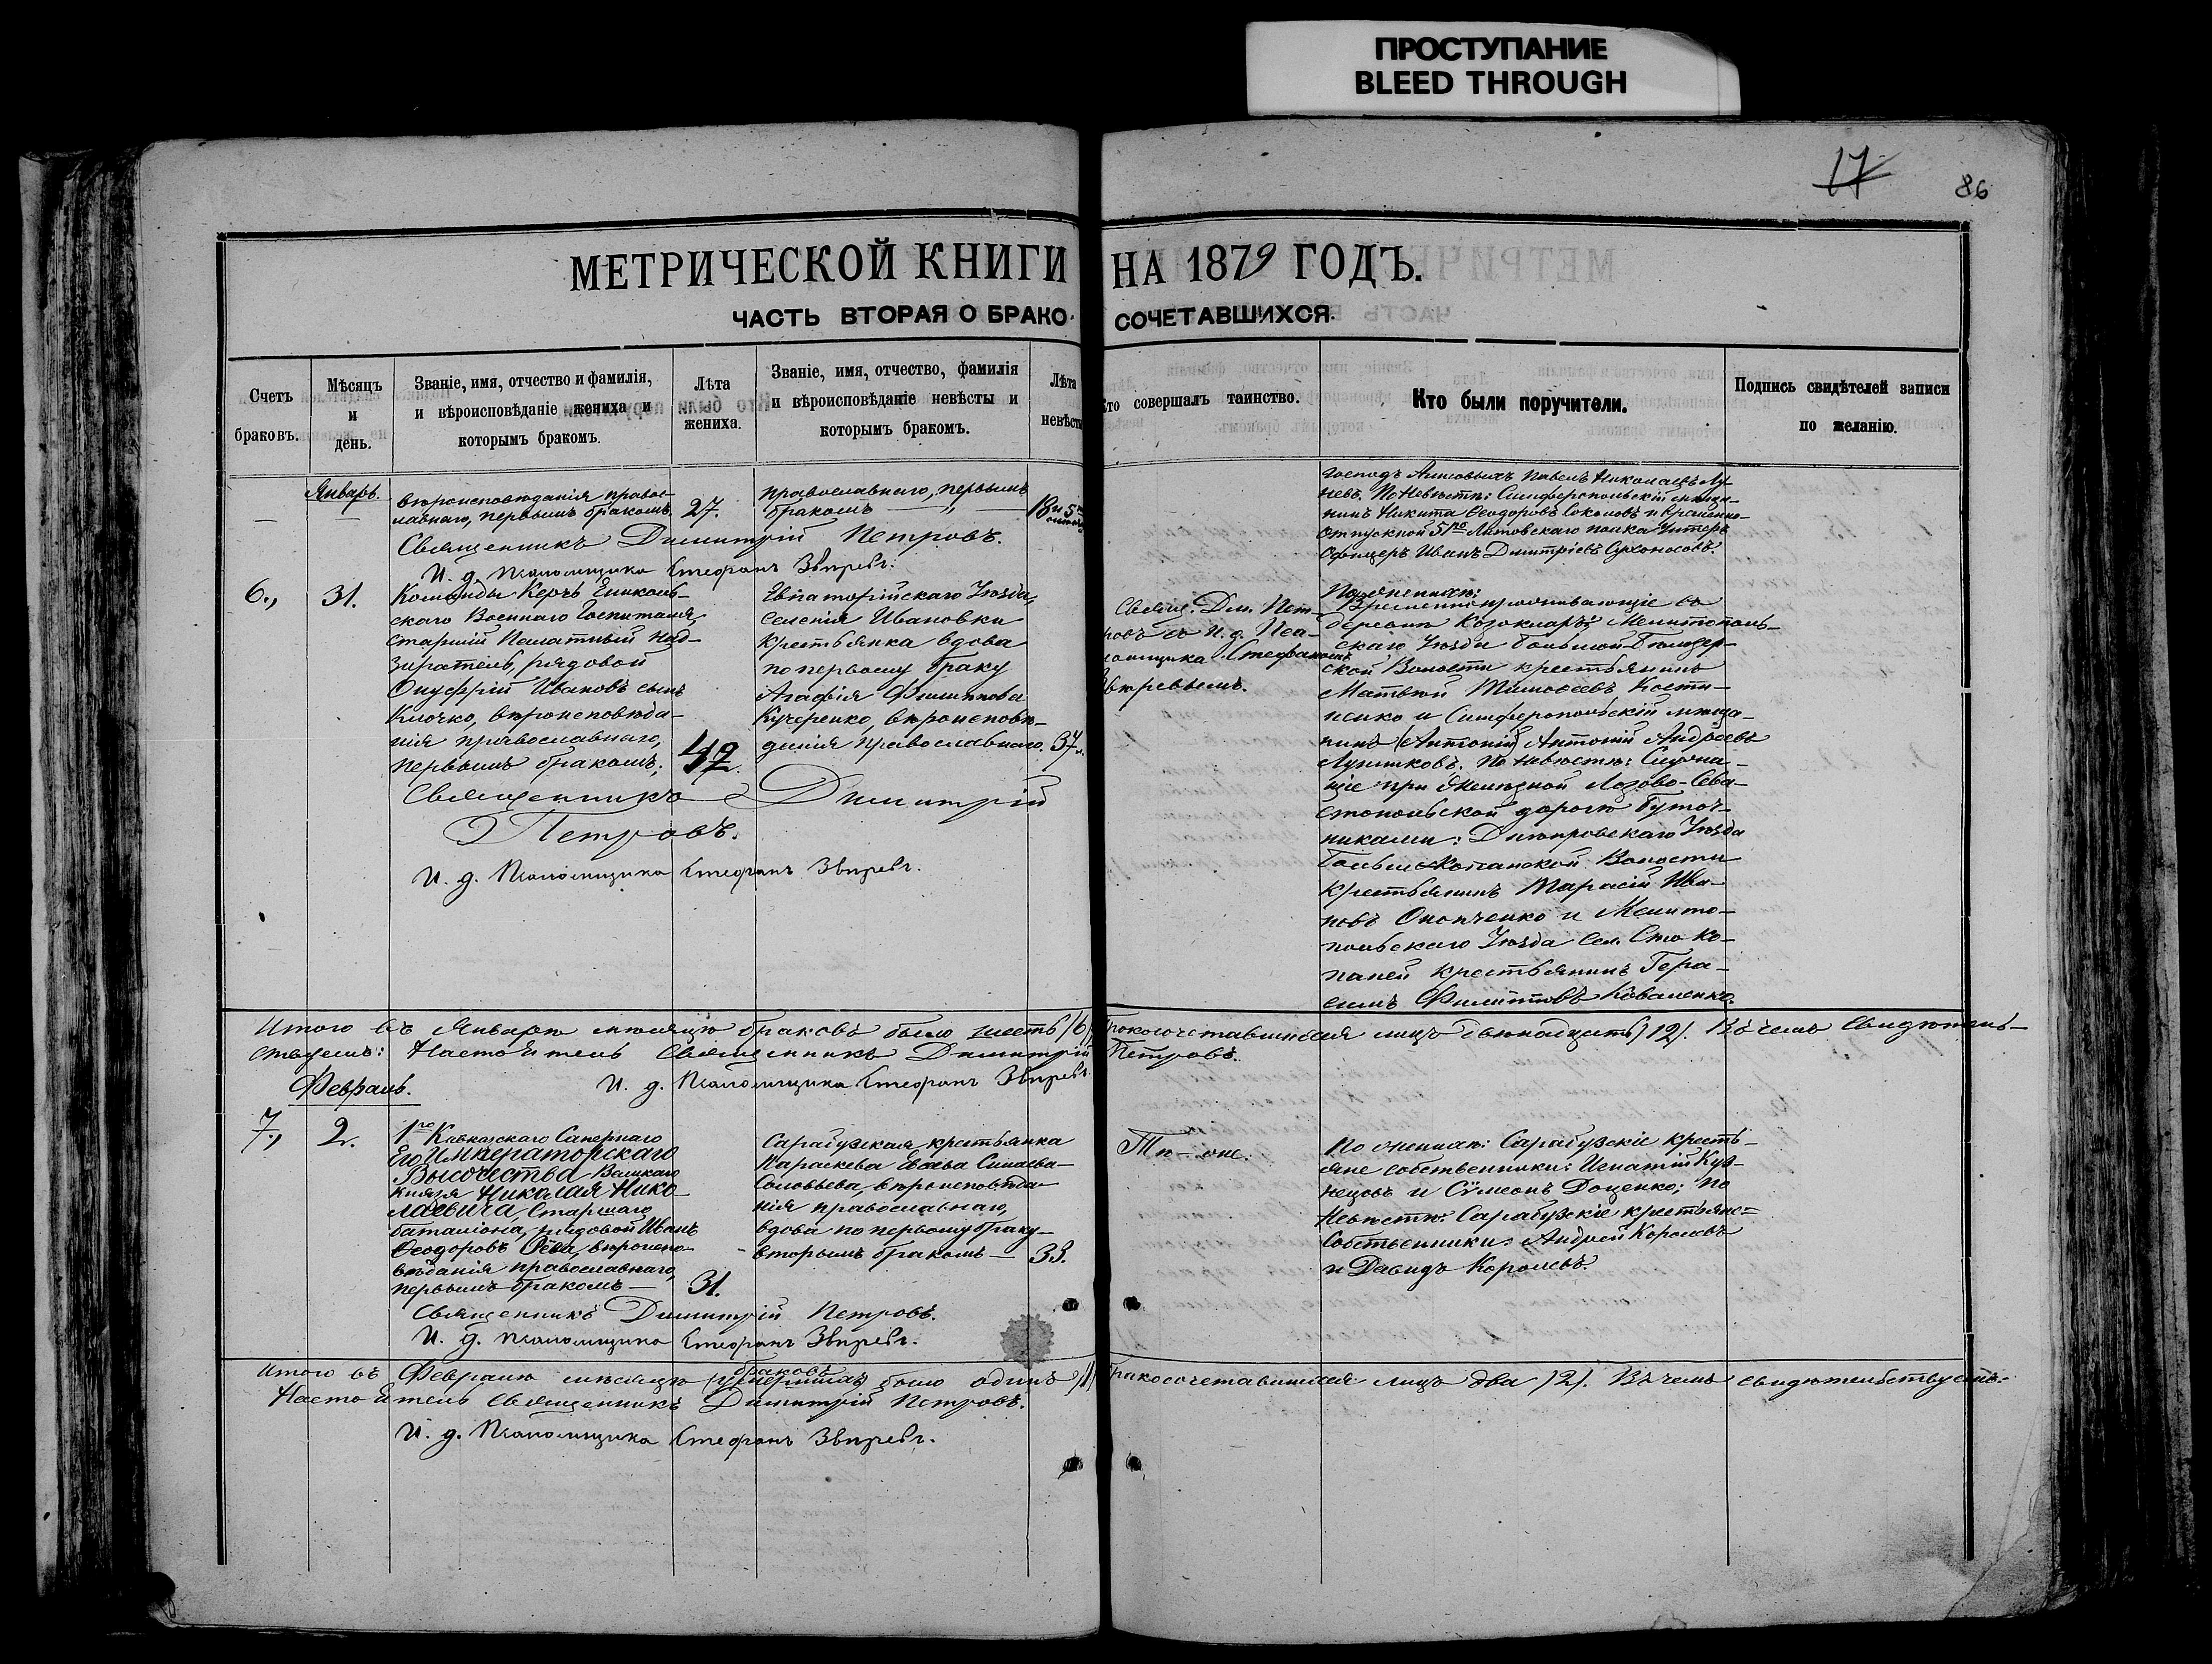 ПРОСТУПАНИЕ
BLEED THROUGH
17
86
МЕТРИЧЕСКОЙ КНИГИ НА 1879 ГОДЪ.
ЧАСТЬ ВТОРАЯ О БРАКО- СОЧЕТАВШИХСЯ.
Счетъ браковъ.
Мѣсяцъ и день.
Званіе, имя, отчество и фамилія,
и вѣроисповѣданіе жениха и
которымъ бракомъ.
Лѣта жениха.
Званіе, имя, отчество, фамилія
и вѣроисповѣданіе невѣсты и
которымъ бракомъ.
Лѣта невѣсты
Кто совершалъ таинство.
Кто были поручители.
Подпись свидѣтелей записи
по желанію.
Январь.
вѣроисповѣданія правос-
лавнаго, первымъ бракомъ,
27.
православнаго, первымъ
бракомъ
18 и 5
Священникъ Димитрій Петровъ.
И. д. Псаломщика Стефанъ Звѣревъ.
господъ Павелъ Николаевъ Лу-
невъ. По невѣстѣ: Симферопольскій мѣща-
нинъ Никита Ѳеодоровъ Соколовъ и временно-
отпускной 5го Литовскаго полка Унтеръ
Офицеръ Иванъ Димитріевъ Сухоносовъ.
6.,
31.
Команды Керчь Ениколь-
скаго Военнаго Госпиталя,
старшій Палатный над-
зиратель, рядовой
Онуфрій Ивановъ сынъ
Клочко, вѣроисповѣда-
нія православнаго,
первымъ бракомъ;
42.
Евпаторійскаго Уѣзда,
селенія Ивановки
крестьянка вдова
по первому браку
Агафія Филиппова
Кучеренко, вѣроисповѣ-
данія православнаго.
37.
Священникъ Димитрій
Петровъ.
И. д. Псаломщика Стефанъ Звѣревъ.
Свящ. Дим. Пет-
ровъ съ И. д. Пса-
ломщика Стефаномъ
Звѣревымъ.
По женихѣ:
Временно проживающіе въ
деревнѣ Мелитополь-
скаго Уѣзда Большой-
ской Волости крестьянинъ
Матвѣй Тимоѳеевъ Кости-
ненко и Симферопольскій мѣща-
нинъ (Антоній) Антоній Андреевъ
Лушиковъ. По невѣстѣ: Служа-
щіе при желѣзной Лозово-Сева-
стопольской дорогѣ будоч-
никами: Днѣпровскаго Уѣзда
Больше-Копанской Волости
крестьянинъ Тарасій Ива-
новъ Онопченко и Мелито-
польскаго Уѣзда Сел. Сто Ко-
паней крестьянинъ Гера-
симъ Филипповъ Коваленко.
Итого въ Январѣ мѣсяцѣ браковъ было шесть /6/, бракосочетавшихся лицъ двѣнадцать /12/. Въ чемъ свидѣтель-
ствуемъ: Настоятель Священникъ Димитрій Петровъ.
И. д. Псаломщика Стефанъ Звѣревъ.
Февраль.
7.,
2.
1го Кавказскаго Сапернаго
Его Императорскаго
Высочества Великаго
Князя Николая Нико-
лаевича Старшаго
баталіона, рядовой Иванъ
Ѳеодоровъ Рева, вѣроиспо-
вѣданія православнаго,
первымъ бракомъ
31.
Сарабузская крестьянка
Параскева Евсева
Соловьева, вѣроисповѣда-
нія православнаго,
вдова по первому браку
вторымъ бракомъ
33.
Тѣ-же.
По женихѣ: Сарабузскіе кресть-
яне собственники: Игнатій Куз-
нецовъ и Сѵмеонъ Доценко; по
невѣстѣ: Сарабузскіе крестьяне-
собственники: Андрей Королевъ
и Давидъ Королевъ.
Священникъ Димитрій Петровъ.
И. д. Псаломщика Стефанъ Звѣревъ.
Итого въ Февралѣ мѣсяцѣ (умершихъ) браковъ было одинъ /1/, бракосочетавшихся лицъ два /2/. Въ чемъ свидѣтельствуемъ:
Настоятель Священникъ Димитрій Петровъ.
И. д. Псаломщика Стефанъ Звѣревъ.